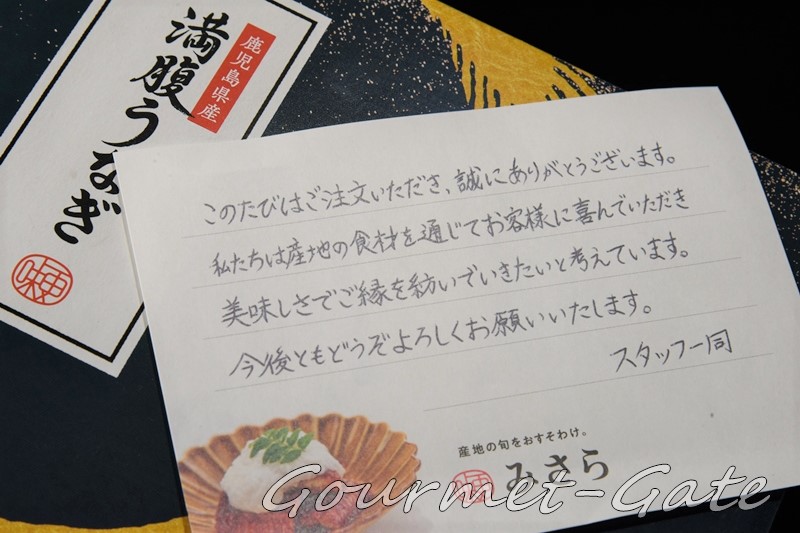 鹿児島県産
満腹うなぎ
このたびはご注文いただき、誠にありがとうございます。
私たちは産地の食材を通じてお客様に喜んでいただき
美味しさでご縁を紡いでいきたいと考えています。
今後ともどうぞよろしくお願いいたします。
スタッフ一同
産地の旬をおすそわけ。
みさら
Gourmet-Gate